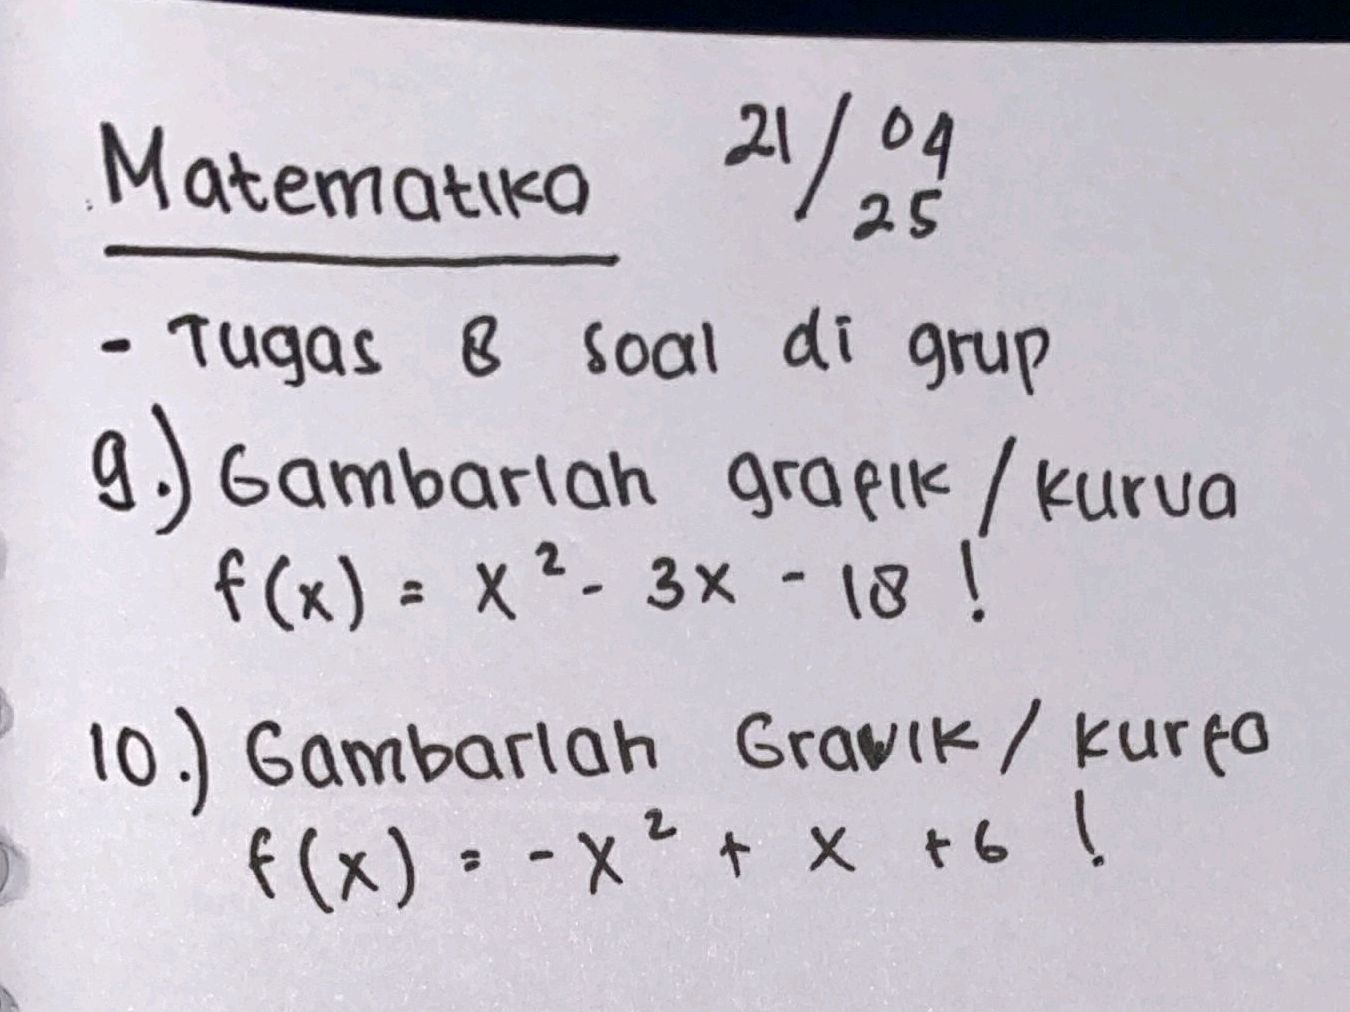 Matematika 21/04
25
- Tugas 8 soal di grup
9.) Gambarlah grafik / kurva
f(x) = x² - 3x - 18 !
10.) Gambarlah Gravik / kurfa
f(x) = -x² + x + 6 !